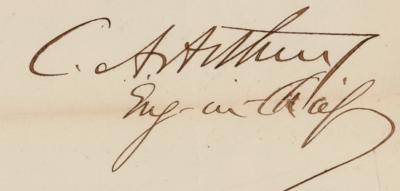 C. A. Arthur
Eng-in-Chief